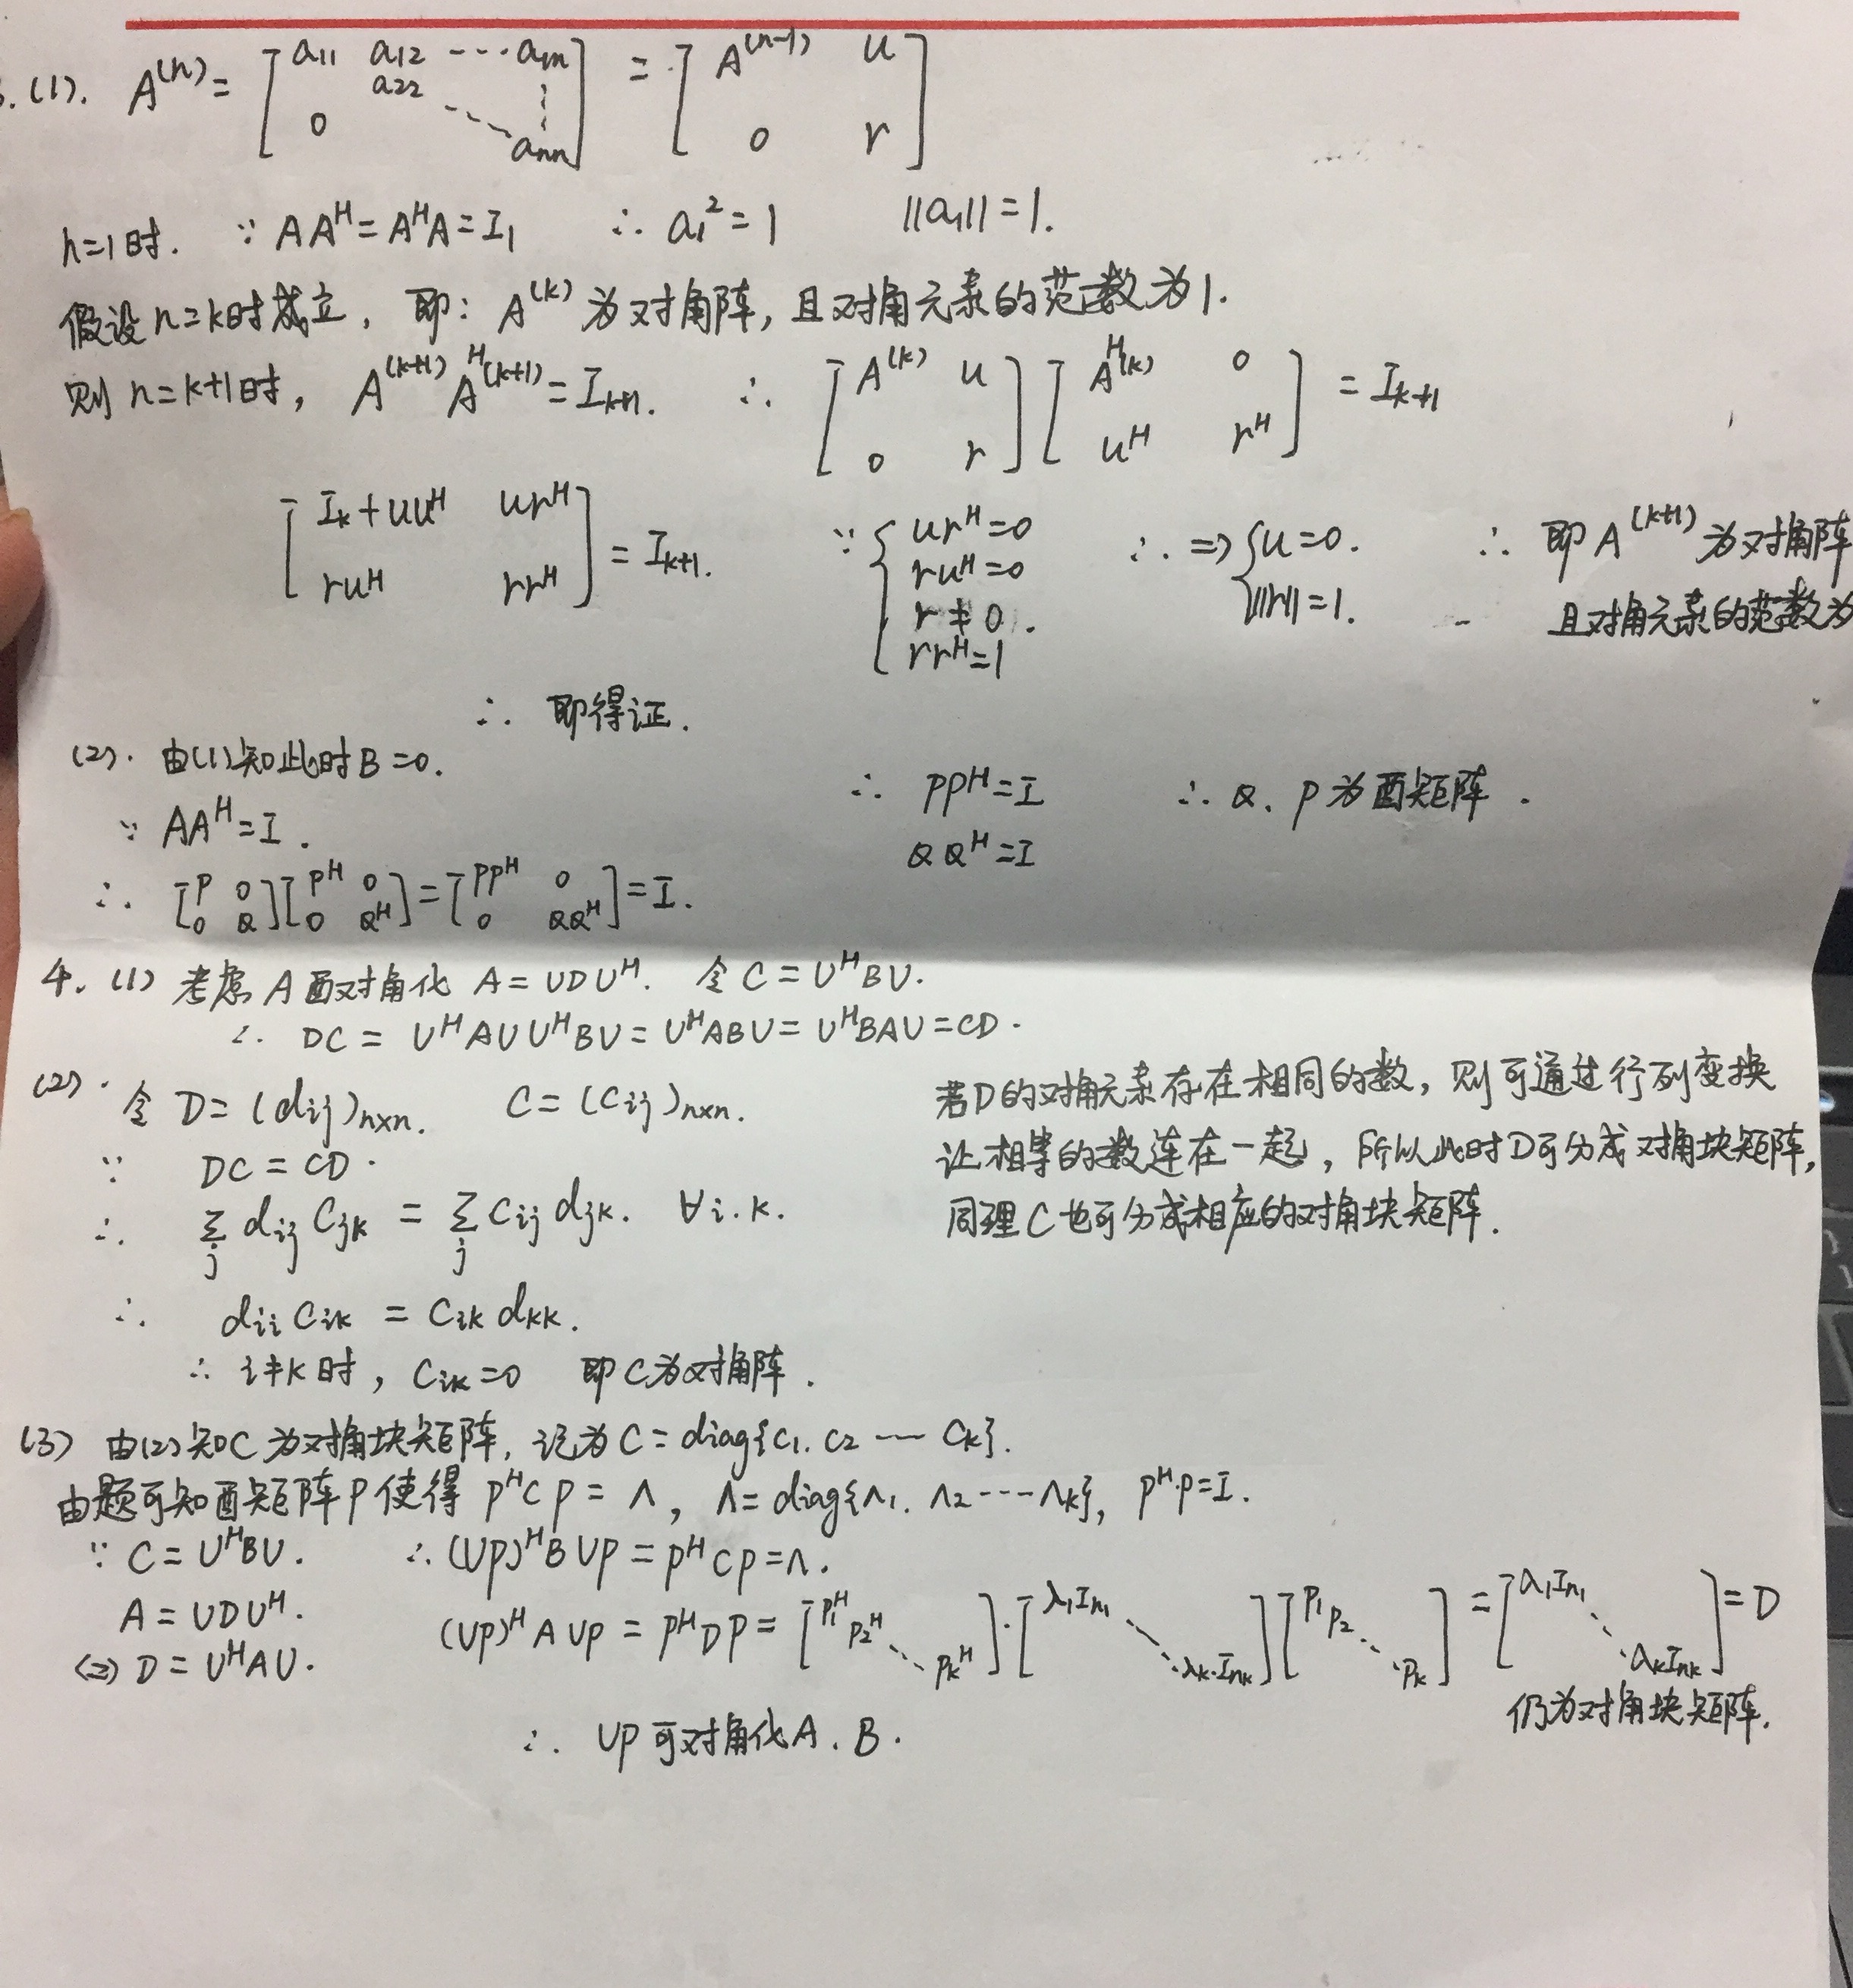 3.(1). A^(n) = [a11 a12 ---- a1n; a22 ⋮; 0 ---- ann] = [A^(n-1) u; 0 r]
n=1时. ∵ AA^H = A^HA = I1 ∴ a1² = 1 ||a1|| = 1.
假设n=k时成立, 即: A^(k) 为对角阵, 且对角元素的范数为1.
则 n=k+1时, A^(k+1) A^H(k+1) = Ik+1. ∴ [A^(k) u; 0 r][A^H(k) 0; u^H r^H] = Ik+1
[Ik+uu^H ur^H; ru^H rr^H] = Ik+1. ∵ {ur^H=0 ru^H=0 r≠0. rr^H=1 ∴ => {u=0. ||r||=1. ∴ 即A^(k+1)为对角阵
且对角元素的范数为
∴ 即得证.
(2). 由(1)知此时B=0.
∵ AA^H=I.
∴ [P 0; 0 Q][P^H 0; 0 Q^H] = [PP^H 0; 0 QQ^H] = I.
∴ PP^H=I ∴ Q、P为酉矩阵.
QQ^H=I
4. (1) 考虑A酉对角化 A=UDU^H. 令C=U^HBU.
∴ DC = U^HAUU^HBU = U^HABU = U^HBAU = CD.
(2). 令D=(dij)n×n. C=(Cij)n×n.
∵ DC=CD.
∴ Σj dij Cjk = Σj Cij djk. ∀i.k.
∴ dii Cik = Cik dkk.
∴ i≠k时, Cik=0 即C为对角阵.
若D的对角元素存在相同的数, 则可通过行列变换
让相等的数连在一起, 所以此时D可分成对角块矩阵,
同理C也可分成相应的对角块矩阵.
(3) 由(2)知C为对角块矩阵, 记为C=diag{C1. C2 ---- Ck}.
由题可知酉矩阵P使得 P^HCP=Λ, Λ=diag{Λ1. Λ2 ---- Λk}, P^H·P=I.
∵ C=U^HBU. ∴ (UP)^HBUP = P^HCP = Λ.
A=UDU^H. (UP)^HAUP = P^HDP = [P1^H P2^H ⋱ Pk^H]·[λ1In1 ⋱ λk·Ink][P1 P2 ⋱ Pk] = [λ1In1 ⋱ λkInk] = D
<=> D=U^HAU.
仍为对角块矩阵.
∴ UP可对角化A、B.